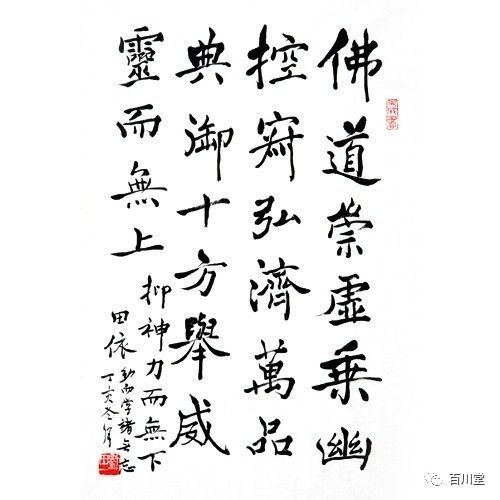 佛道崇虚乘幽
控寂弘濟萬品
典御十方舉威
靈而無上
抑神力而無下
田依
丁亥冬月
百川堂